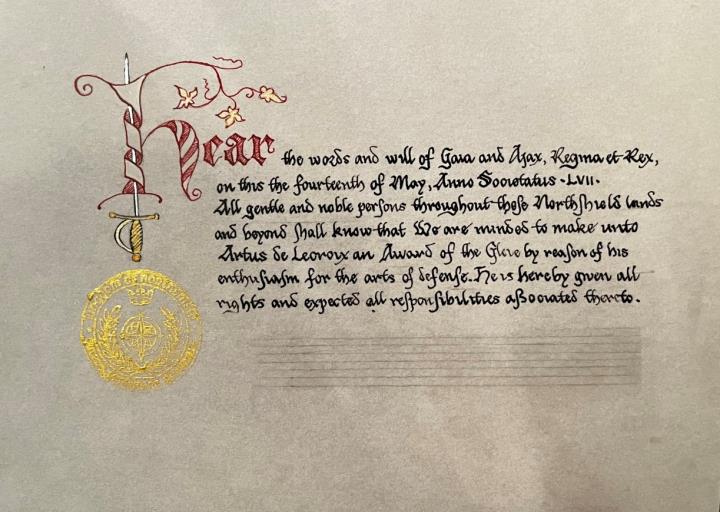 Hear the words and will of Gaia and Ajax, Regina et Rex,
on this the fourteenth of May, Anno Societatus · LVII ·
All gentle and noble persons throughout these Northshield lands
and beyond shall know that We are minded to make unto
Artus de Lecroix an Award of the Glove by reason of his
enthusiasm for the arts of defense. He is hereby given all
rights and expected all responsibilities associated thereto.